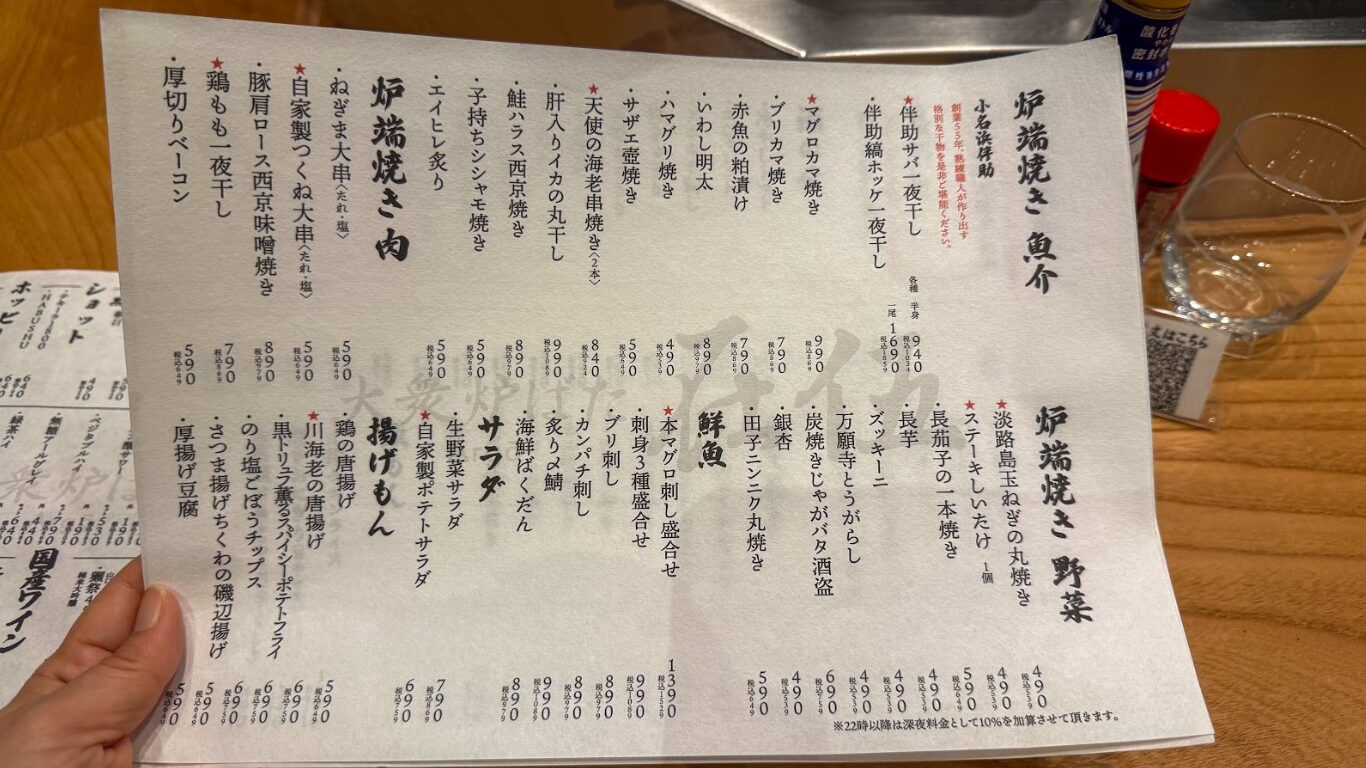 炉端焼き 魚介
小名浜伴助
創業55年、熟練職人が作り出す
格別な干物を是非ご堪能ください。
★伴助サバ一夜干し 各種 半身 940 税込1034
・伴助縞ホッケ一夜干し 一尾 1690 税込1859
★マグロカマ焼き 990
・ブリカマ焼き 790 税込869
・赤魚の粕漬け 790 税込869
・いわし明太 890 税込979
・ハマグリ焼き 490 税込539
・サザエ壺焼き 590 税込649
★天使の海老串焼き〈2本〉 840 税込924
・肝入りイカの丸干し 990 税込1089
・鮭ハラス西京焼き 890 税込979
・子持ちシシャモ焼き 590 税込649
・エイヒレ炙り 590 税込649
炉端焼き 肉
・ねぎま大串〈たれ・塩〉 590 税込649
★自家製つくね大串〈たれ・塩〉 590 税込649
・豚肩ロース西京味噌焼き 890 税込979
★鶏もも一夜干し 790 税込869
・厚切りベーコン 590 税込649
炉端焼き 野菜
★淡路島玉ねぎの丸焼き 490 税込539
★ステーキしいたけ 1個 490 税込539
・長茄子の一本焼き 590 税込649
・長芋 490 税込539
・ズッキーニ 490 税込539
・万願寺とうがらし 490 税込539
・炭焼きじゃがバタ酒盗 690 税込759
・銀杏 490 税込539
・田子ニンニク丸焼き 590 税込649
鮮魚
★本マグロ刺し盛合せ 1390 税込1529
・刺身3種盛合せ 990 税込1089
・ブリ刺し 890 税込979
・カンパチ刺し 890 税込979
・炙り〆鯖 990 税込1089
・海鮮ばくだん 890 税込979
サラダ
・生野菜サラダ 790 税込869
★自家製ポテトサラダ 690 税込759
揚げもん
・鶏の唐揚げ 590 税込649
★川海老の唐揚げ 690 税込759
・黒トリュフ薫るスパイシーポテトフライ 690 税込759
・のり塩ごぼうチップス 690 税込759
・さつま揚げちくわの磯辺揚げ 590 税込649
・厚揚げ豆腐 590 税込649
※22時以降は深夜料金として10%を加算させて頂きます。
大衆炉ばた
ショット
・テキーラ1800
・HABUSHU
ホッピー
国産ワイン
純米大吟醸
えはこちら